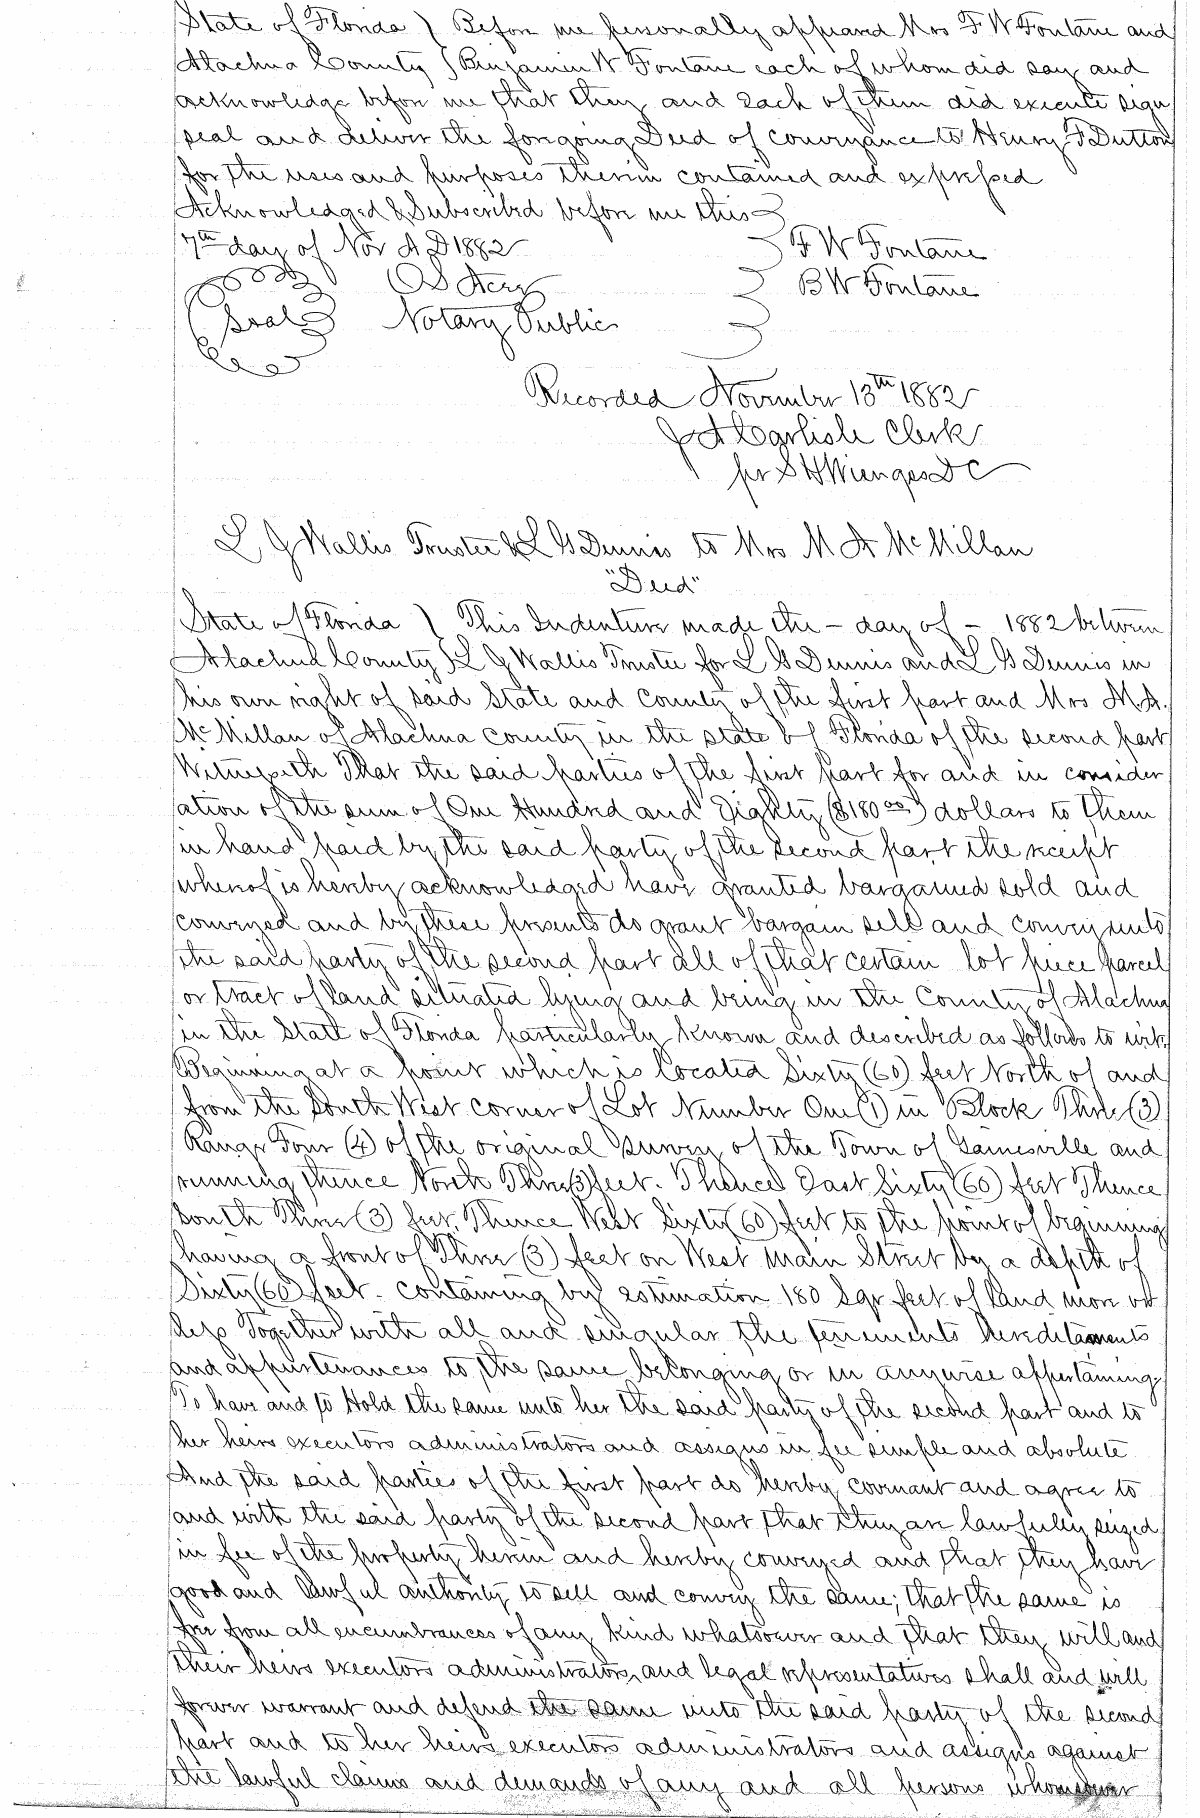 State of Florida } Before me personally appeared Mrs F W Fontane and
Alachua County } Benjamin W Fontane each of whom did say and
acknowledge before me that they and each of them did execute sign
seal and deliver the foregoing Deed of conveyance to Henry F Dutton
for the uses and purposes therein contained and expressed
Acknowledged & Subscribed before me this }
7th day of Nov A D 1882 } F W Fontane
B W Fontane
Seal Notary Public
Recorded November 13th 1882
J A Carlisle Clerk
per S H Wienges D C
L G Wallis Trustee & L G Dennis to Mrs M A McMillan
"Deed"
State of Florida } This Indenture made the - day of - 1882 between
Alachua County } L G Wallis Trustee for L G Dennis and L G Dennis in
his own right of said State and County of the first part and Mrs M.A.
McMillan of Alachua County in the state of Florida of the second part
Witnesseth That the said parties of the first part for and in consider
ation of the sum of One Hundred and Eighty ($180 00) dollars to them
in hand paid by the said party of the second part the receipt
whereof is hereby acknowledged have granted bargained sold and
conveyed and by these presents do grant bargain sell and convey unto
the said party of the second part all of that certain lot piece parcel
or tract of land situated lying and being in the County of Alachua
in the State of Florida particularly known and described as follows to wit,
Beginning at a point which is located Sixty (60) feet North of and
from the South West corner of Lot Number One (1) in Block Three (3)
Range Four (4) of the original survey of the Town of Gainesville and
running thence North Three (3) feet. Thence East Sixty (60) feet Thence
South Three (3) feet. Thence West Sixty (60) feet to the point of beginning
having a front of Three (3) feet on West Main Street by a depth of
Sixty (60) feet. containing by estimation 180 Sqr feet of land more or
less Together with all and singular the tenements hereditaments
and appurtenances to the same belonging or in anywise appertaining
To have and to Hold the same unto her the said party of the second part and to
her heirs executors administrators and assigns in fee simple and absolute
And the said parties of the first part do hereby covenant and agree to
and with the said party of the second part that they are lawfully seized
in fee of the property herein and hereby conveyed and that they have
good and lawful authority to sell and convey the same; that the same is
free from all encumbrances of any kind whatsoever and that they will and
their heirs executors administrators, and legal representatives shall and will
forever warrant and defend the same unto the said party of the second
part and to her heirs executors administrators and assigns against
the lawful claims and demands of any and all persons whomsoever